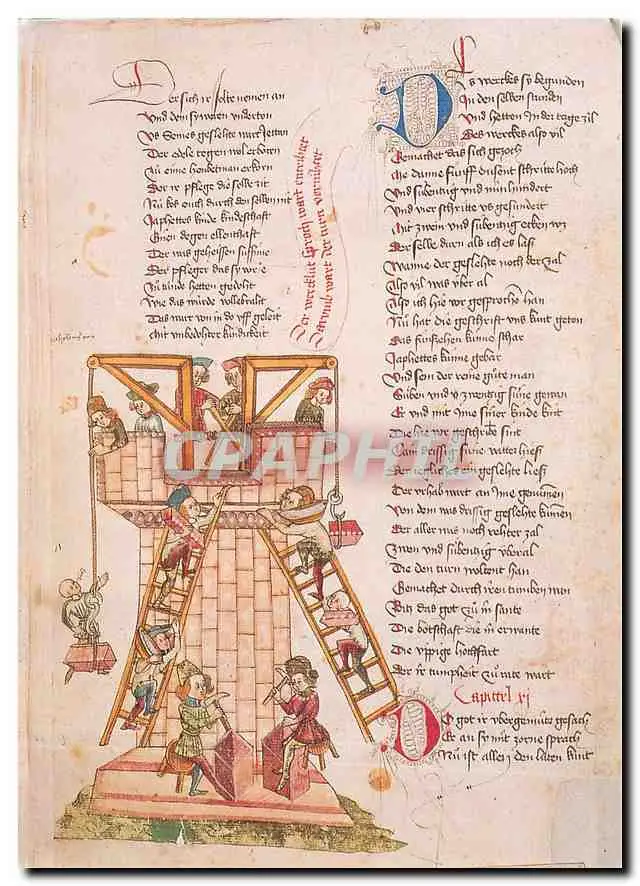 Der sich ir solte nemen an
Und dem sy woren undertan
Us Semes geslehte wart Jettan
Der edele tegen wol erborn
Zu eime houbetman erkorn
Der ir pflege die selbe zit
Nu bis ouch durch den selben nit
Japhettes kinde kindeschaft
Einen degen ellenthaft
Der was geheissen suffene
Der pfleger das sy
In hetten
Wie das wurde vollebraht
Das wart von in do uff geleit
Mit unbedohter kundikeit
Der wercklut sproch wart entrihtet
Darumb wart der turn vernihtet
Dis werckes sy begunden
In den selben stunden
Und hetten In der tage zil
Des werckes also vil
Gemachet das sich gezoch
Me danne funff dusent schritte hoch
Und subentzig und nun hundert
Und vier schritte us gesundert
Mit zwein und subentzig ecken
Der selbe durn als ich es las
Wanne der geslehte noch der zal
Also vil was uber al
Also ich hie vor gesprochen han
Nu hat die geschrift uns kunt geton
Das funfzehen kunne schar
Japhettes kunne gebar
Und sem der reine gute man
Suben und zwentzig sune gewan
Er und mit Ime siner kinde kint
Die hie vor geschriben sint
Cam drissig sune witter hies
Der ieglicher ein geslehte lies
Der urhab wart an Ime genummen
Von dem was drissig geslehte kummen
Der aller was noch rehter zal
Zwen und subentzig uberal
Die den turn woltent han
Gemachet durch iren tumben wan
Bitz das got zu in sante
Die botschaft die in erwante
Die uppige hochfart
Der ir tumpheit zu rate wart
Capittel xi
Do got ir ubergemute gesach
Er an sy mit zorne sprach
Nu ist allen den luten kunt
CPAPHIL